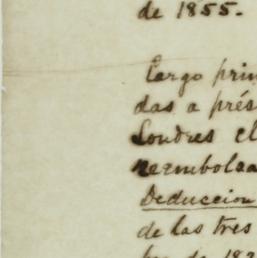 de 1855.-
Cargo prin
das a prés
Londres el
reembolsa
Deduccion
de las tres